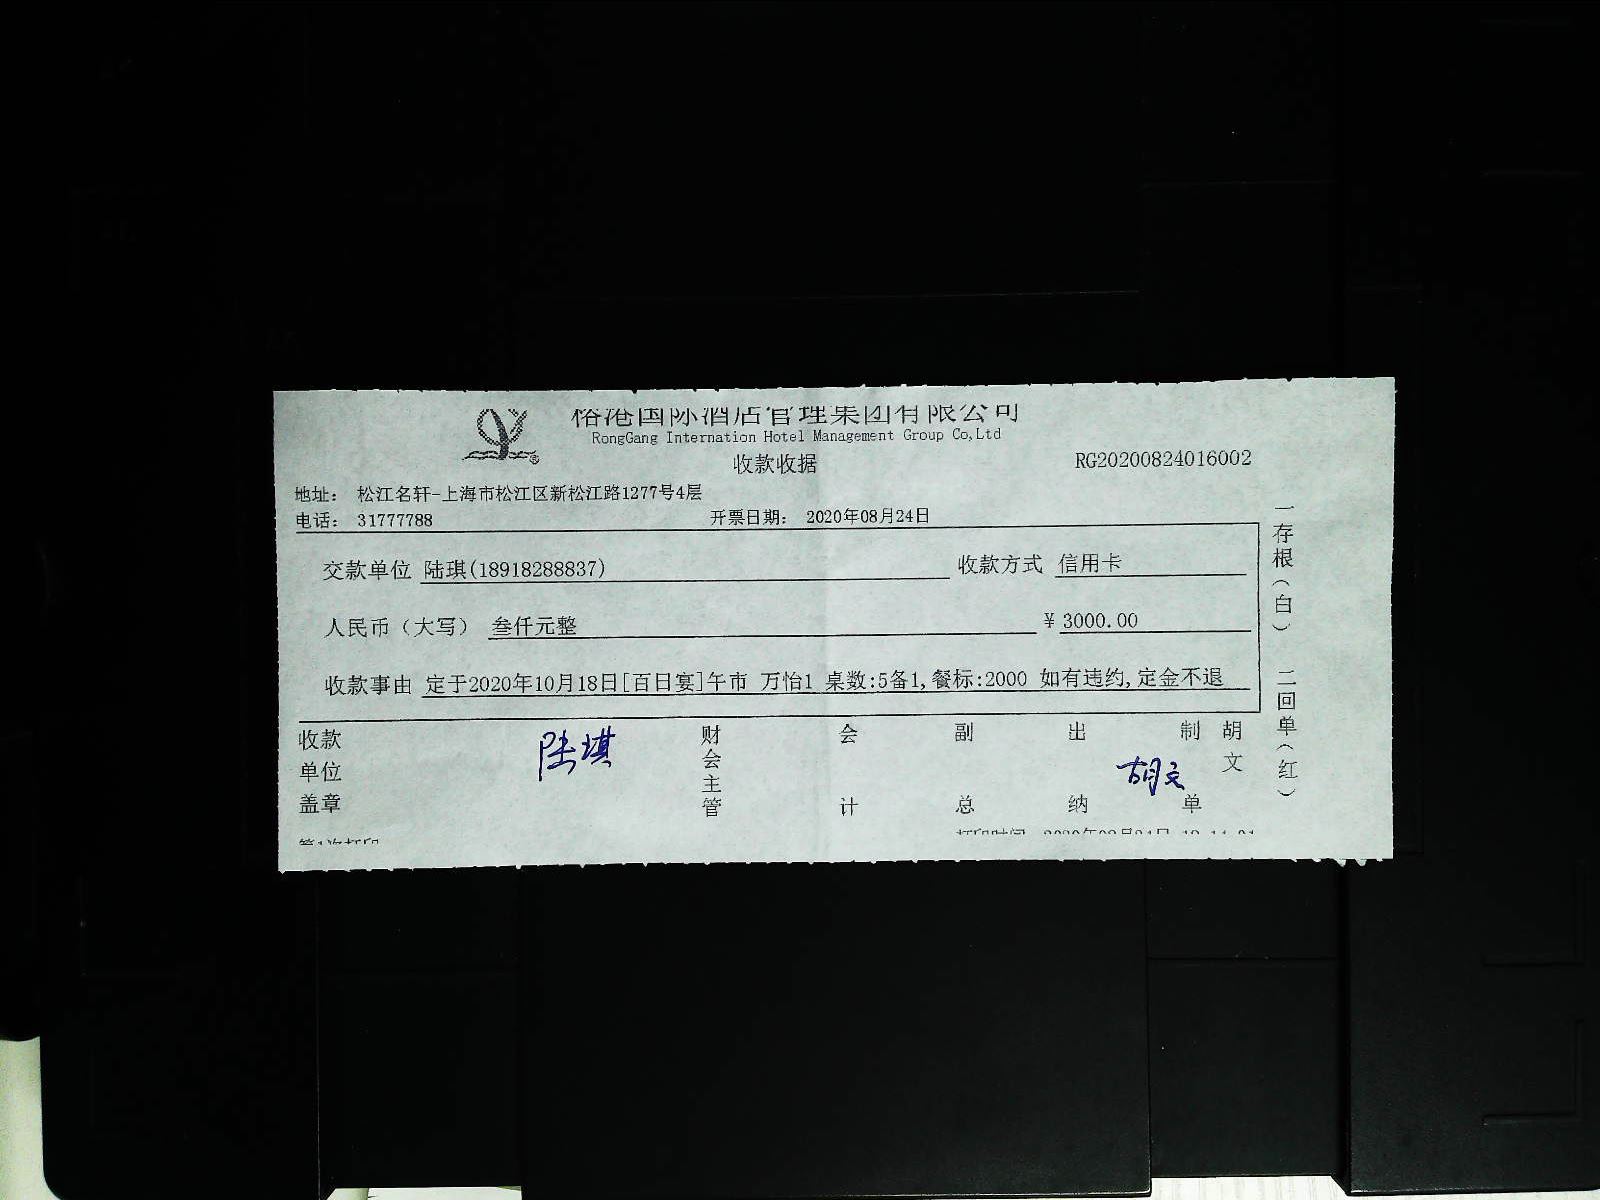 国际酒店管理集团有限公司
RongGang Internation Hotel Management Group Co,Ltd
收款收据
RG20200824016002
地址： 松江名轩-上海市松江区新松江路1277号4层
电话： 31777788 开票日期： 2020年08月24日
交款单位 陆琪(18918288837) 收款方式 信用卡
人民币（大写） 叁仟元整 ¥ 3000.00
收款事由 定于2020年10月18日[百日宴]午市 万怡1 桌数:5备1,餐标:2000 如有违约,定金不退
收款单位盖章 陆琪 财会主管 会计 副总 出纳 制单 胡文 胡文
一存根（白） 二回单（红）
第1次打印
打印时间